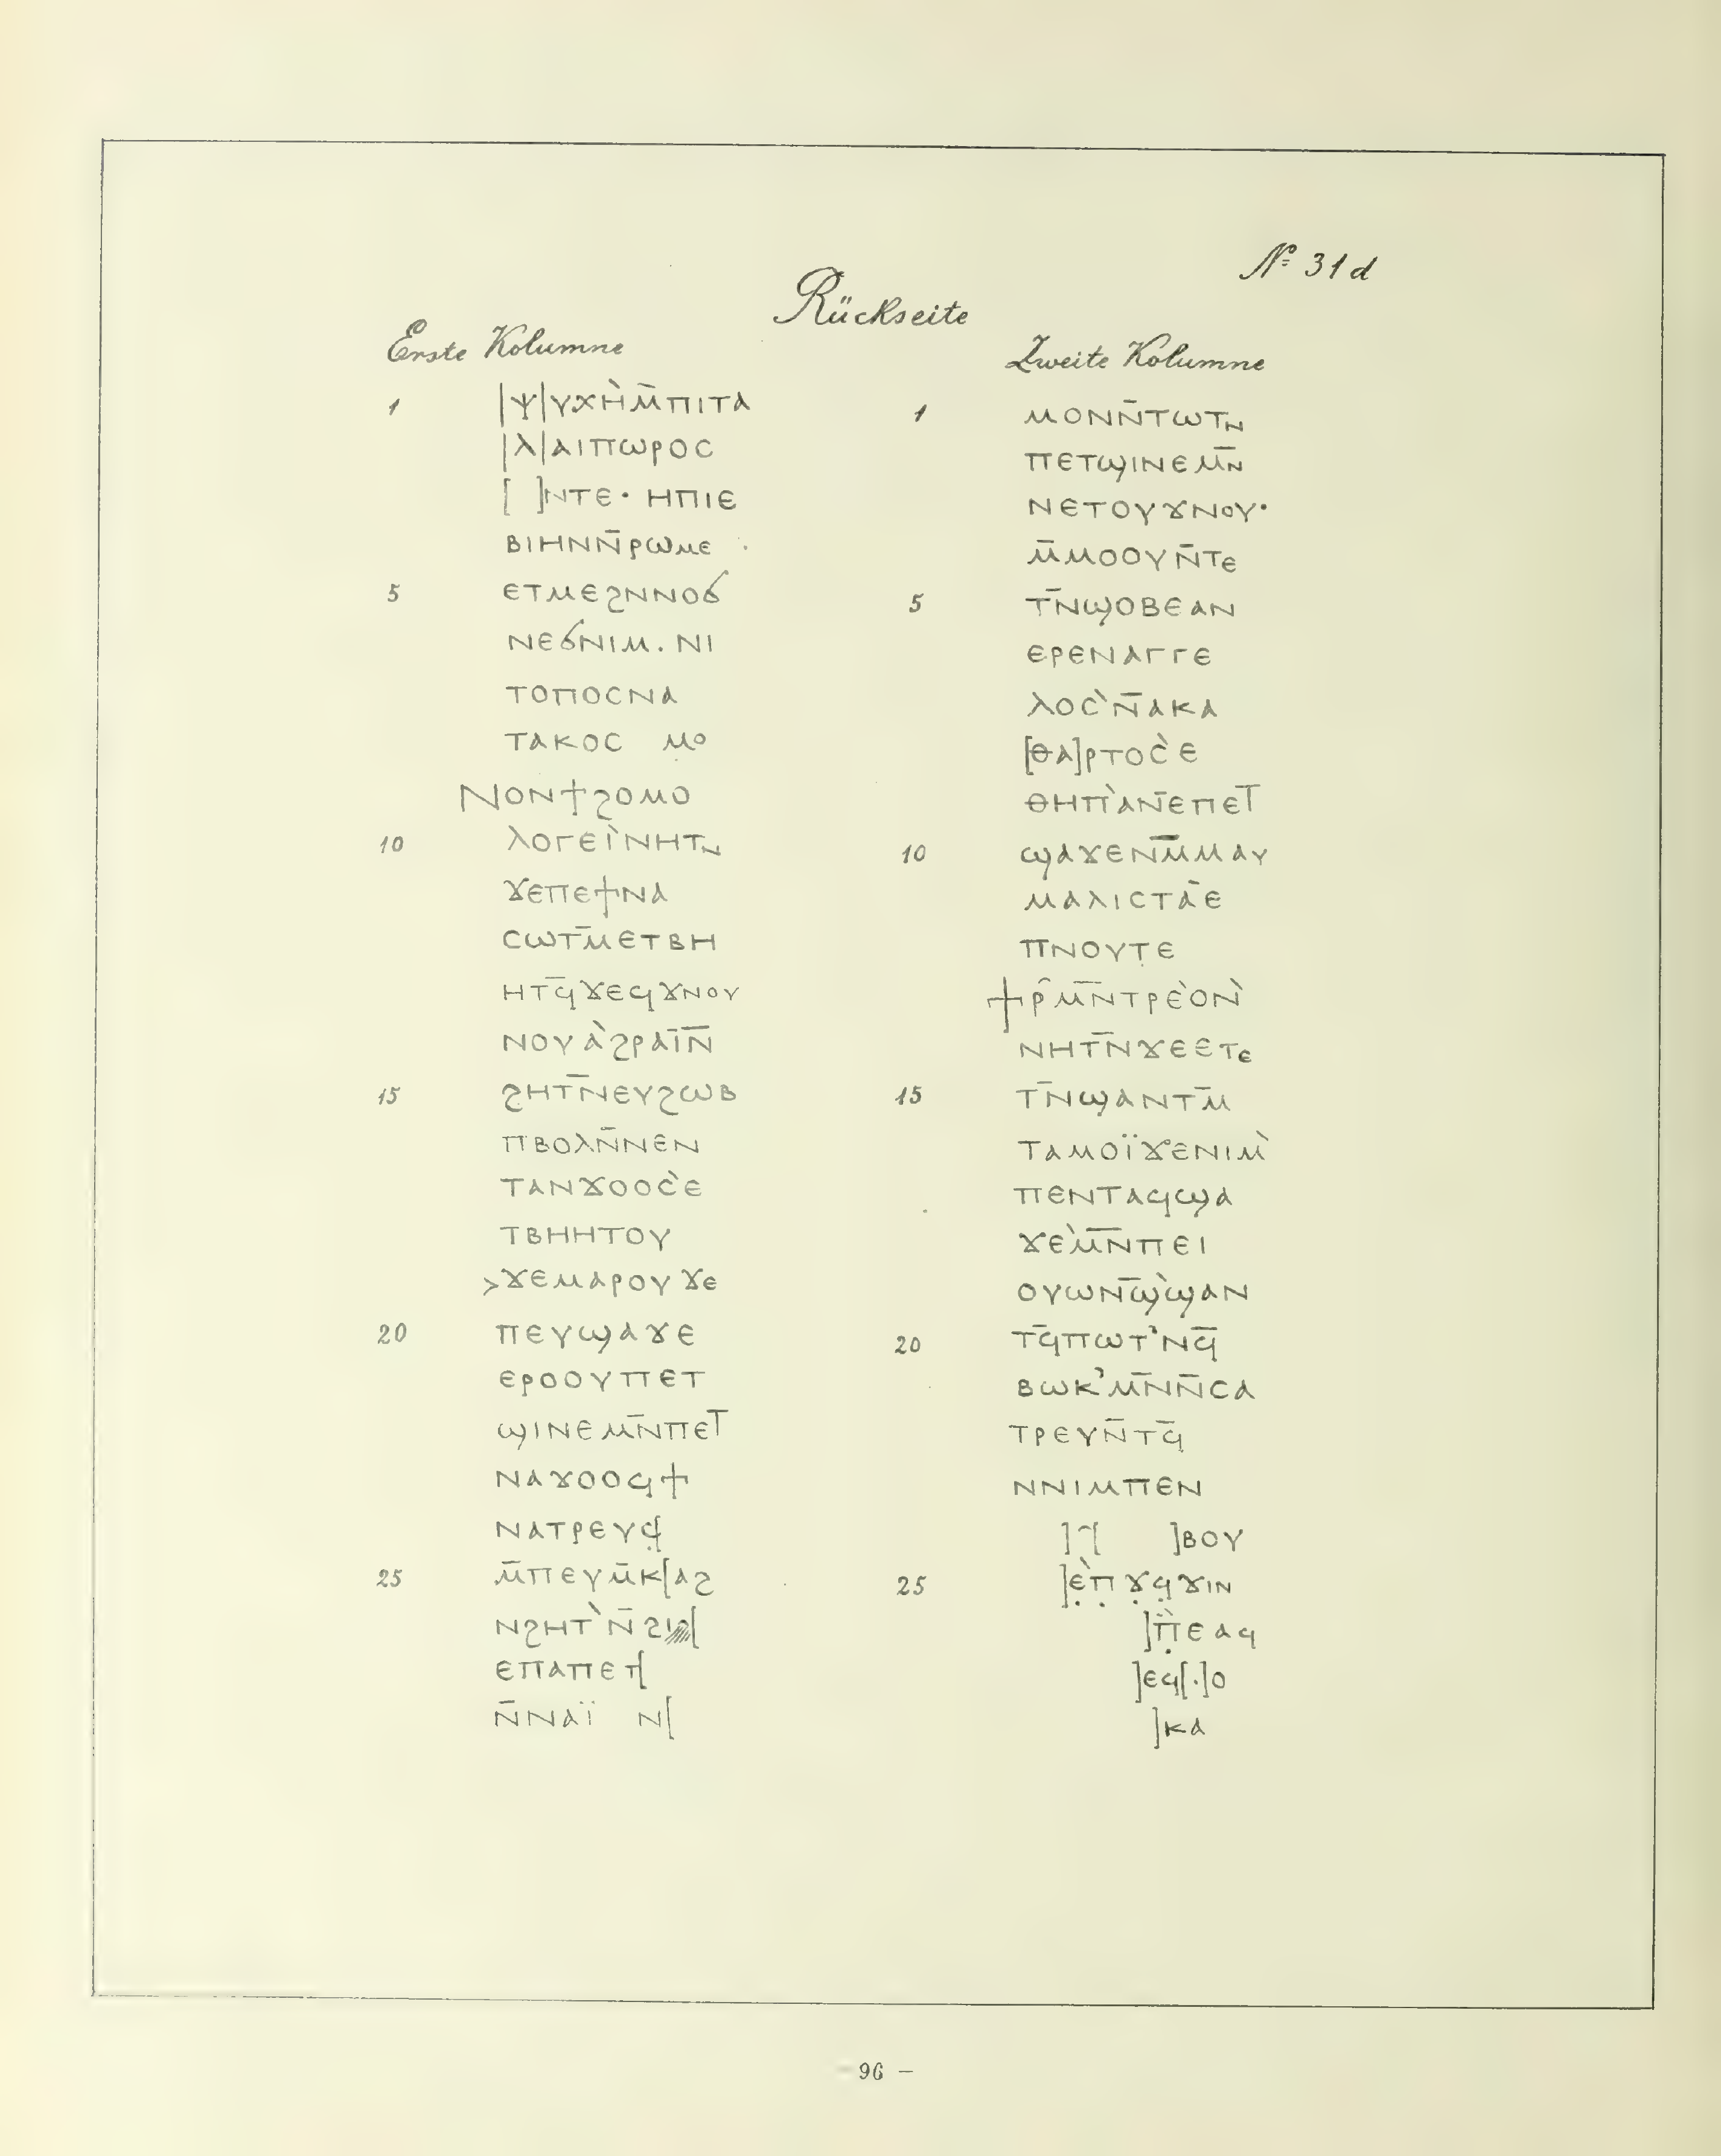 № 31 d
Rückseite
Erste Kolumne
1 |ⲯ|ⲩⲭⲏ̀ⲙ̄ⲡⲓⲧⲁ
|ⲗ|ⲁⲓⲡⲱⲣⲟⲥ
[ ]ⲛⲧⲉ· ⲏⲡⲓⲉ
ⲃⲓⲏⲛⲛ̄ⲣⲱⲙⲉ
5 ⲉⲧⲙⲉϩⲛⲛⲟϭ
ⲛⲉϭⲛⲓⲙ. ⲛⲓ
ⲧⲟⲡⲟⲥⲛⲁ
ⲧⲁⲕⲟⲥ ⲙⲟ
ⲛⲟⲛϯϩⲟⲙⲟ
10 ⲗⲟⲅⲉⲓ̀ⲛⲏⲧⲛ
ϫⲉⲡⲉϯⲛⲁ
ⲥⲱⲧⲙ̄ⲉⲧⲃⲏ
ⲏⲧϥ̄ϫⲉϥϫⲛⲟⲩ
ⲛⲟⲩⲁ̀ϩⲣⲁⲓ̈ⲛ̄
15 ϩⲏⲧⲛ̄ⲉⲩϩⲱⲃ
ⲡⲃⲟⲗⲛ̄ⲛⲉⲛ
ⲧⲁⲛϫⲟⲟⲥ̀ⲉ
ⲧⲃⲏⲏⲧⲟⲩ
>ϫⲉⲙⲁⲣⲟⲩϫⲉ
20 ⲡⲉⲩϣⲁϫⲉ
ⲉⲣⲟⲟⲩⲡⲉⲧ
ϣⲓⲛⲉⲙⲛ̄ⲡⲉⲧ̄
ⲛⲁϫⲟⲟϥϯ
ⲛⲁⲧⲣⲉⲩϥ̣[
25 ⲙ̄ⲡⲉⲩⲙ̄ⲕ[ⲁϩ
ⲛϩⲏⲧ̀ⲛ̄ϩⲓ[
ⲉⲡⲁⲡⲉⲧ[
ⲛ̄ⲛⲁⲓ̈ ⲛ[
Zweite Kolumne
1 ⲙⲟⲛⲛ̄ⲧⲱⲧⲛ
ⲡⲉⲧϣⲓⲛⲉⲙⲛ̄
ⲛⲉⲧⲟⲩϫⲛⲟⲩ·
ⲙ̄ⲙⲟⲟⲩⲛ̄ⲧⲉ
5 ⲧⲛ̄ϣⲟⲃⲉⲁⲛ
ⲉⲣⲉⲛⲁⲅⲅⲉ
ⲗⲟⲥ̀ⲛ̄ⲁⲕⲁ
[ⲑⲁ]ⲣⲧⲟⲥ̀ⲉ
ⲑⲏⲡ̀ⲁⲛ̄ⲉⲡⲉⲧ̄
10 ϣⲁϫⲉⲛⲙ̄ⲙⲁⲩ
ⲙⲁⲗⲓⲥⲧⲁ̄ⲉ
ⲡⲛⲟⲩⲧ̣ⲉ
ϯⲣ̂ⲙⲛ̄ⲧⲣⲉ̀ⲟⲛ̀
ⲛⲏⲧⲛ̄ϫⲉⲉⲧⲉ
15 ⲧⲛ̄ϣⲁⲛⲧⲙ̄
ⲧⲁⲙⲟⲓ̈ϫⲉⲛⲓⲙ̀
ⲡⲉⲛⲧⲁϥϣⲁ
ϫⲉ̀ⲙⲛ̄ⲡⲉⲓ
ⲟⲩⲱⲛϣ̄̀ϣⲁⲛ
20 ⲧϥ̄ⲡⲱⲧ’ⲛϥ̄
ⲃⲱⲕ’ⲙⲛ̄ⲛ̄ⲥⲁ
ⲧⲣⲉⲩⲛ̄ⲧϥ̄
ⲛⲛⲓⲙⲡⲉⲛ
] [ ]ⲃⲟⲩ
25 ]ⲉ̣̀ⲡ̣ϫ̣ϥ̣ϫⲓⲛ
]ⲡ̣̈ⲉⲁϥ
]ⲉϥ[·]ⲟ
]ⲕⲁ
96 —